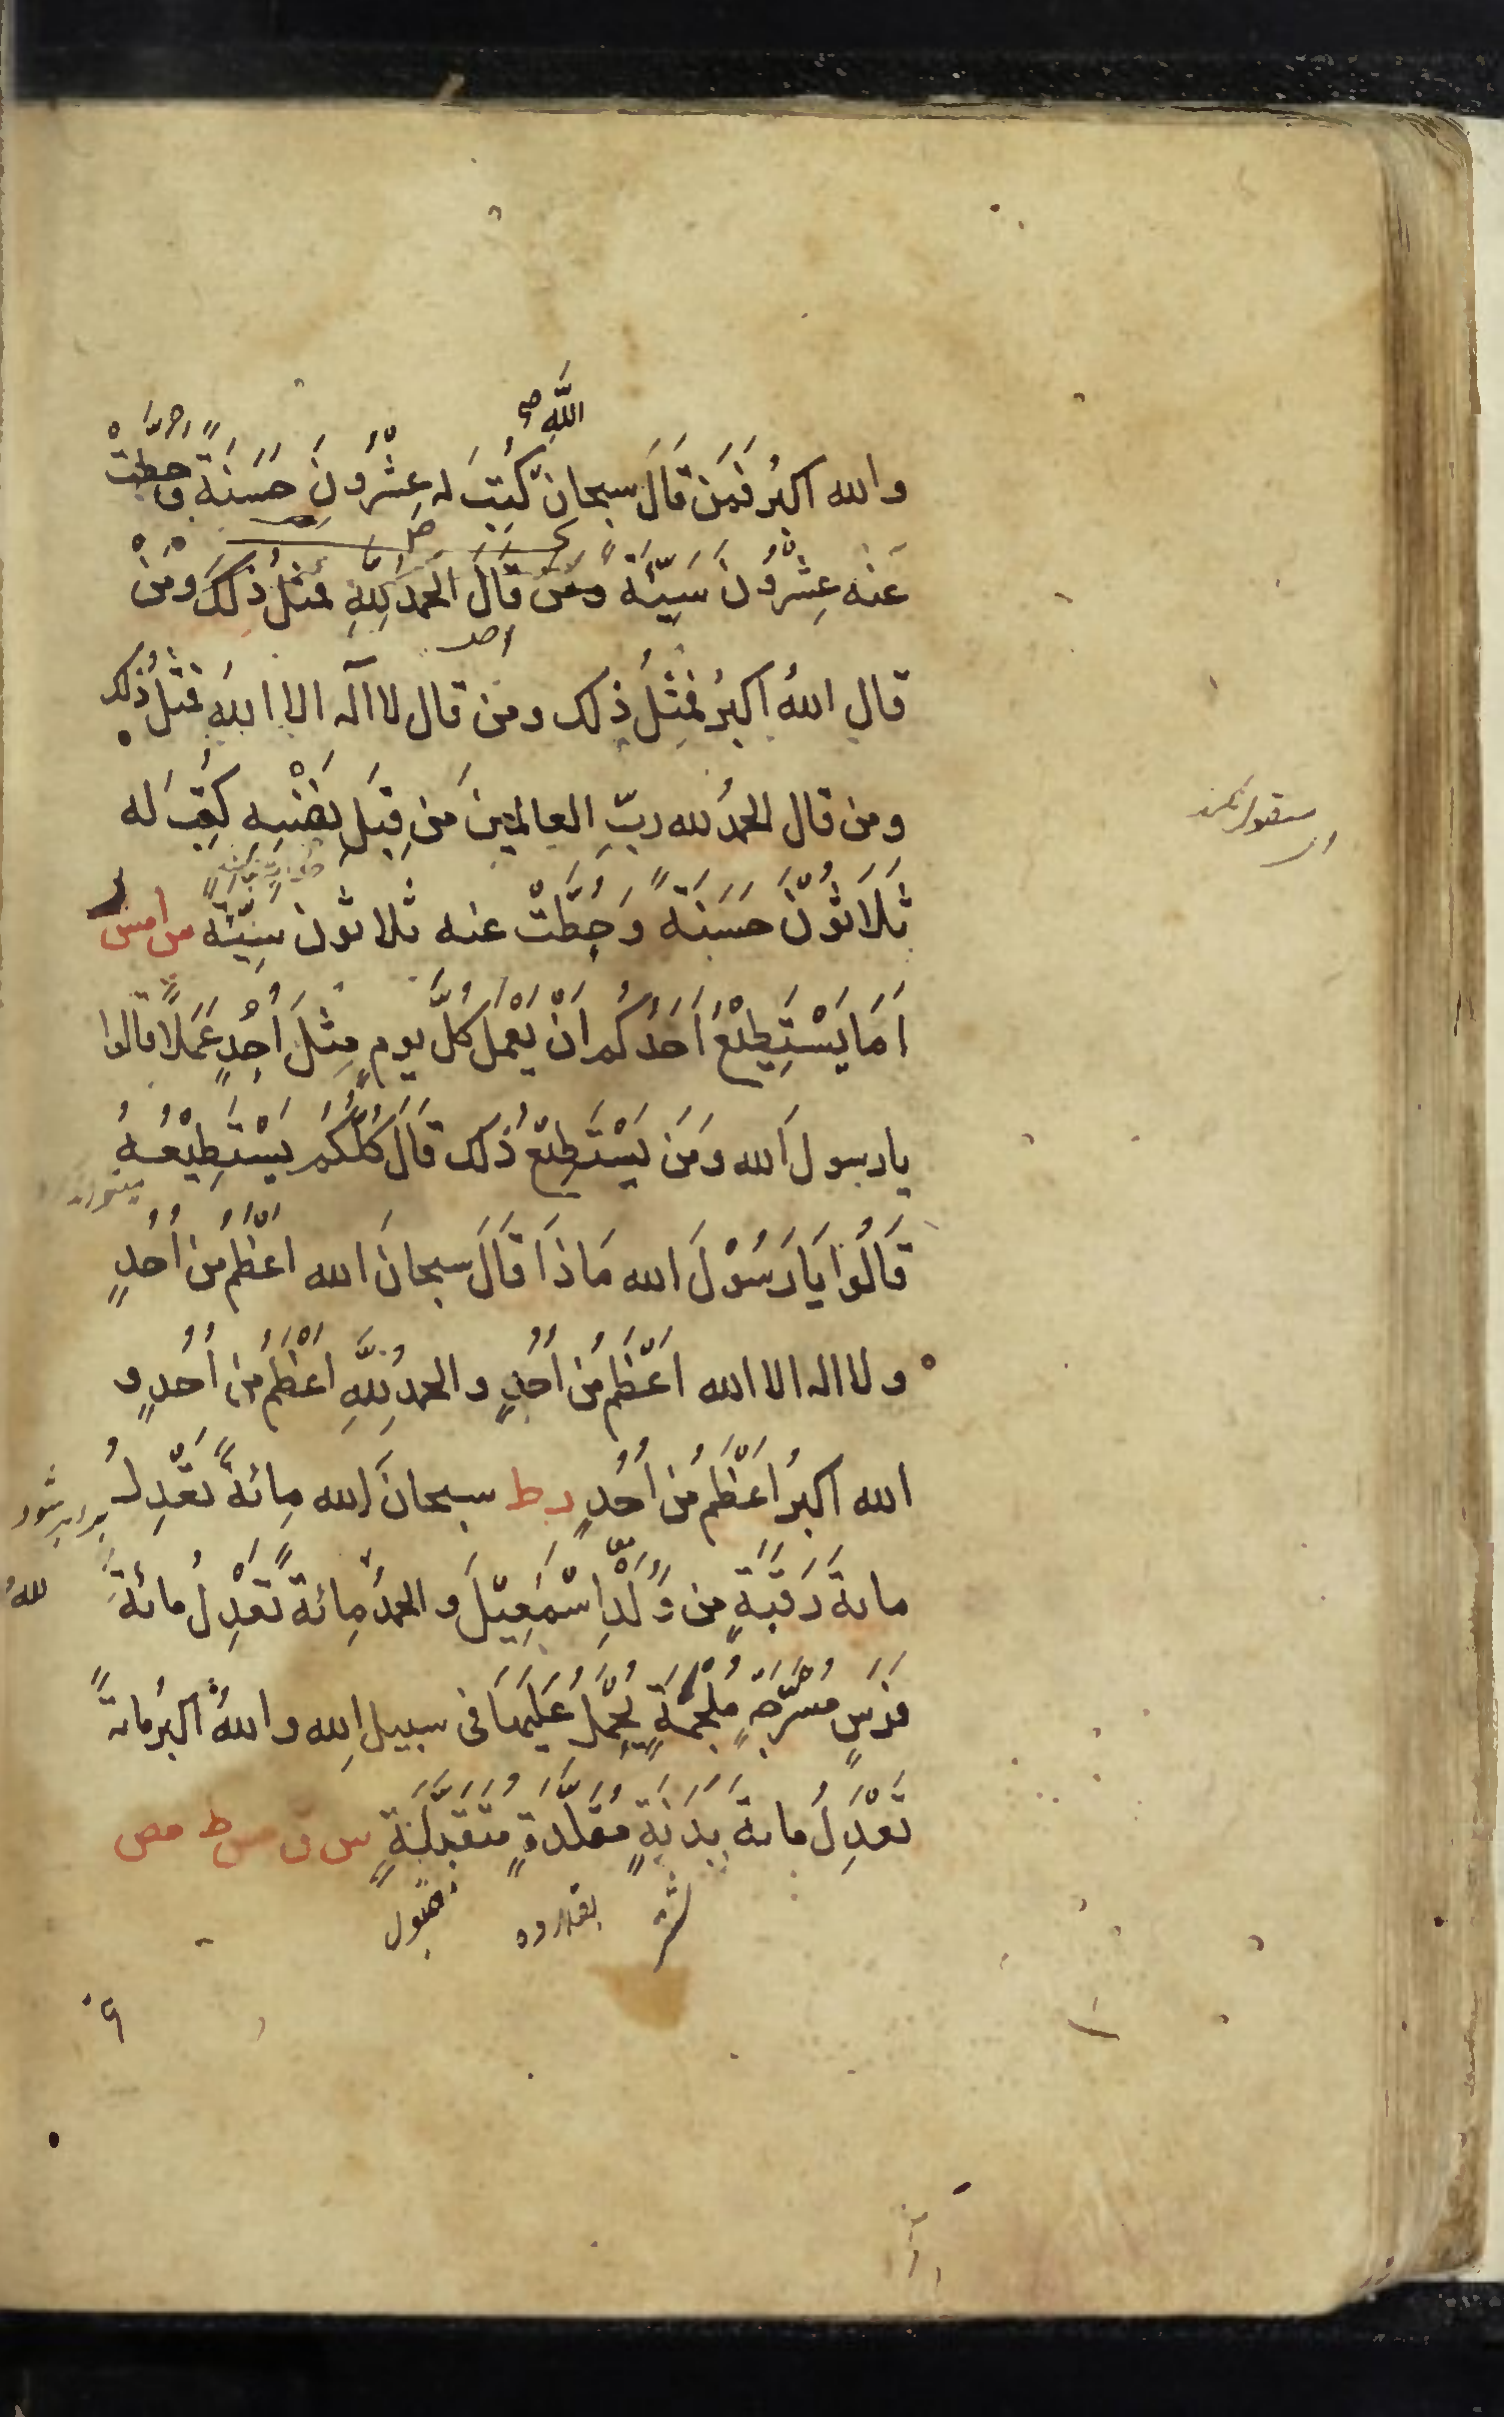 الله صح
والله اكبرُ فَمَن قَالَ سبحان كُتِبَ له عِشْرُونَ حَسَنَةً وحُطَّتْ
عَنه عِشْرُونَ سَيِّئَةً وَمَن قَالَ الحَمدُ لِلّهِ فمثلُ ذٰلكَ ومَنْ
قال اللهُ اكبرُ فمِثلُ ذلك ومَن قال لا اله الا الله فمثلُ ذلك
ومَن قال الحمدُ لله ربِّ العالمين مَن قِبَلِ نَفْسِهِ كُتِبَ له
ثَلَاثُونَ حَسَنَةً وَحُطَّتْ عنه ثلاثون سَيِّئَةً س ا مس ر
اَمَا يَسْتَطِيْعُ اَحَدُكُم اَنْ يَعْمَلَ كُلَّ يومٍ مِثلَ اُحُدٍ عَمَلًا قالوا
يا رسولَ الله ومَن يَسْتَطِيْعُ ذٰلك قَالَ كُلُّكُم يَسْتَطِيْعُهُ
قَالُوا يَا رَسُوْلَ الله مَاذَا قَالَ سبحانَ الله اعْظَمُ مِن اُحُدٍ
ولا اله الا الله اعْظَمُ مِن اُحُدٍ والحمدُ لِلّهِ اعْظَمُ مِن اُحُدٍ و
الله اكبرُ اعْظَمُ مِن اُحُدٍ ر ط سبحانَ الله مِائةً تَعْدِلُ
مائةَ رَقَبَةٍ مِن وُلْدِ اِسْمٰعِيْلَ والحمدُ مِائةً تَعْدِلُ مائةَ لله
فرسٍ مُسْرَجَةٍ مُلْجَمَةٍ يُحْمَلُ عَلَيهَا فى سبيلِ الله واللهُ اكبرُ مائةً
تَعْدِلُ مائةَ بَدَنَةٍ مُقَلَّدَةٍ مُتَقَبَّلَةٍ س ق مس ط مص